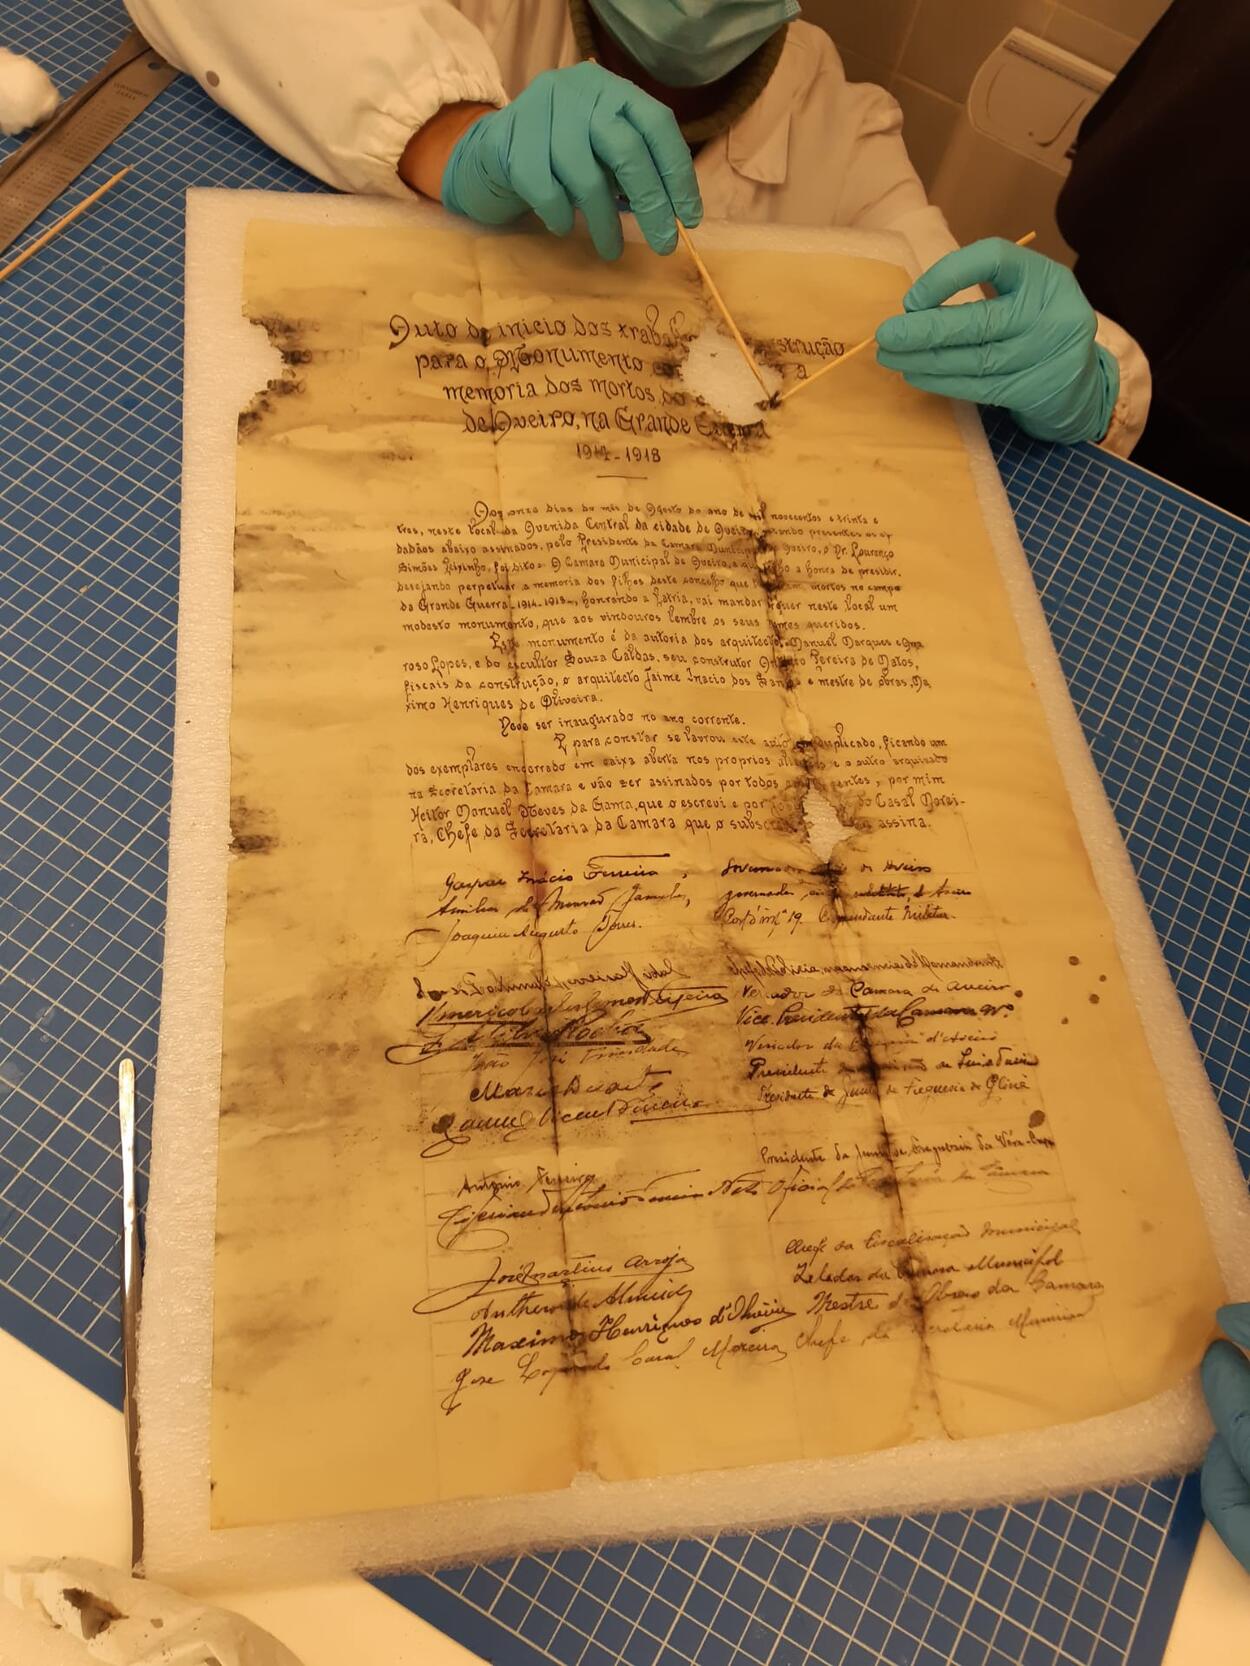 Auto de inicio dos trabal strução
para o Monumento a
memoria dos mortos do
de Aveiro, na Grande Guerra
1914-1918
Aos onze dias do mes de Agosto do ano de mil novecentos e trinta e
tres, neste local da Avenida Central da cidade de Aveiro, estando presentes os ci
dadãos abaixo assinados, pelo Presidente da Camara Municipal Aveiro, o Dr. Lourenço
Simões Peixinho, foi dito: A Camara Municipal de Aveiro, a que a honra de presidir,
desejando perpetuar a memoria dos filhos deste concelho que mortos no campo
da Grande Guerra-1914-1918-, honrando a Patria, vai mandar erguer neste local um
modesto monumento, que aos vindouros lembre os seus nomes queridos.
Este monumento é da autoria dos arquitectos Manuel Marques e Ama
roso Lopes, e do escultor Souza Caldas, seu construtor Pereira de Matos,
fiscais da construção, o arquitecto Jaime Inacio dos Santos e mestre de obras, Ma
ximo Henriques de Oliveira.
Deve ser inaugurado no ano corrente.
E para constar se lavrou este auto em duplicado, ficando um
dos exemplares encerrado em caixa aberta nos proprios e o outro arquivado
na Secretaria da Camara e vão ser assinados por todos entes, por mim
Heitor Manuel Neves da Gama, que o escrevi e por do Casal Morei-
ra, Chefe da Secretaria da Camara que o subsc assina.
Gaspar Inácio Ferreira, de Aveiro
governador
Joaquim Augusto Comandante Militar
Vereador da Camara de Aveiro
Vice-Presidente da Camara
João José Trindade Vereador da d'Aveiro
Presidente
Presidente da Junta de Freguesia da Gloria
Presidente da Junta de Freguesia da Vera-Cruz
Antonio Ferreira
Neto Oficial da
José Martins Arroja Chefe da Fiscalisação Municipal
Anthero de Almeida Zelador da Camara Municipal
Maximo Henriques d'Oliveira Mestre d'Obras da Camara
José Casal Moreira, Chefe da Secretaria Municipal